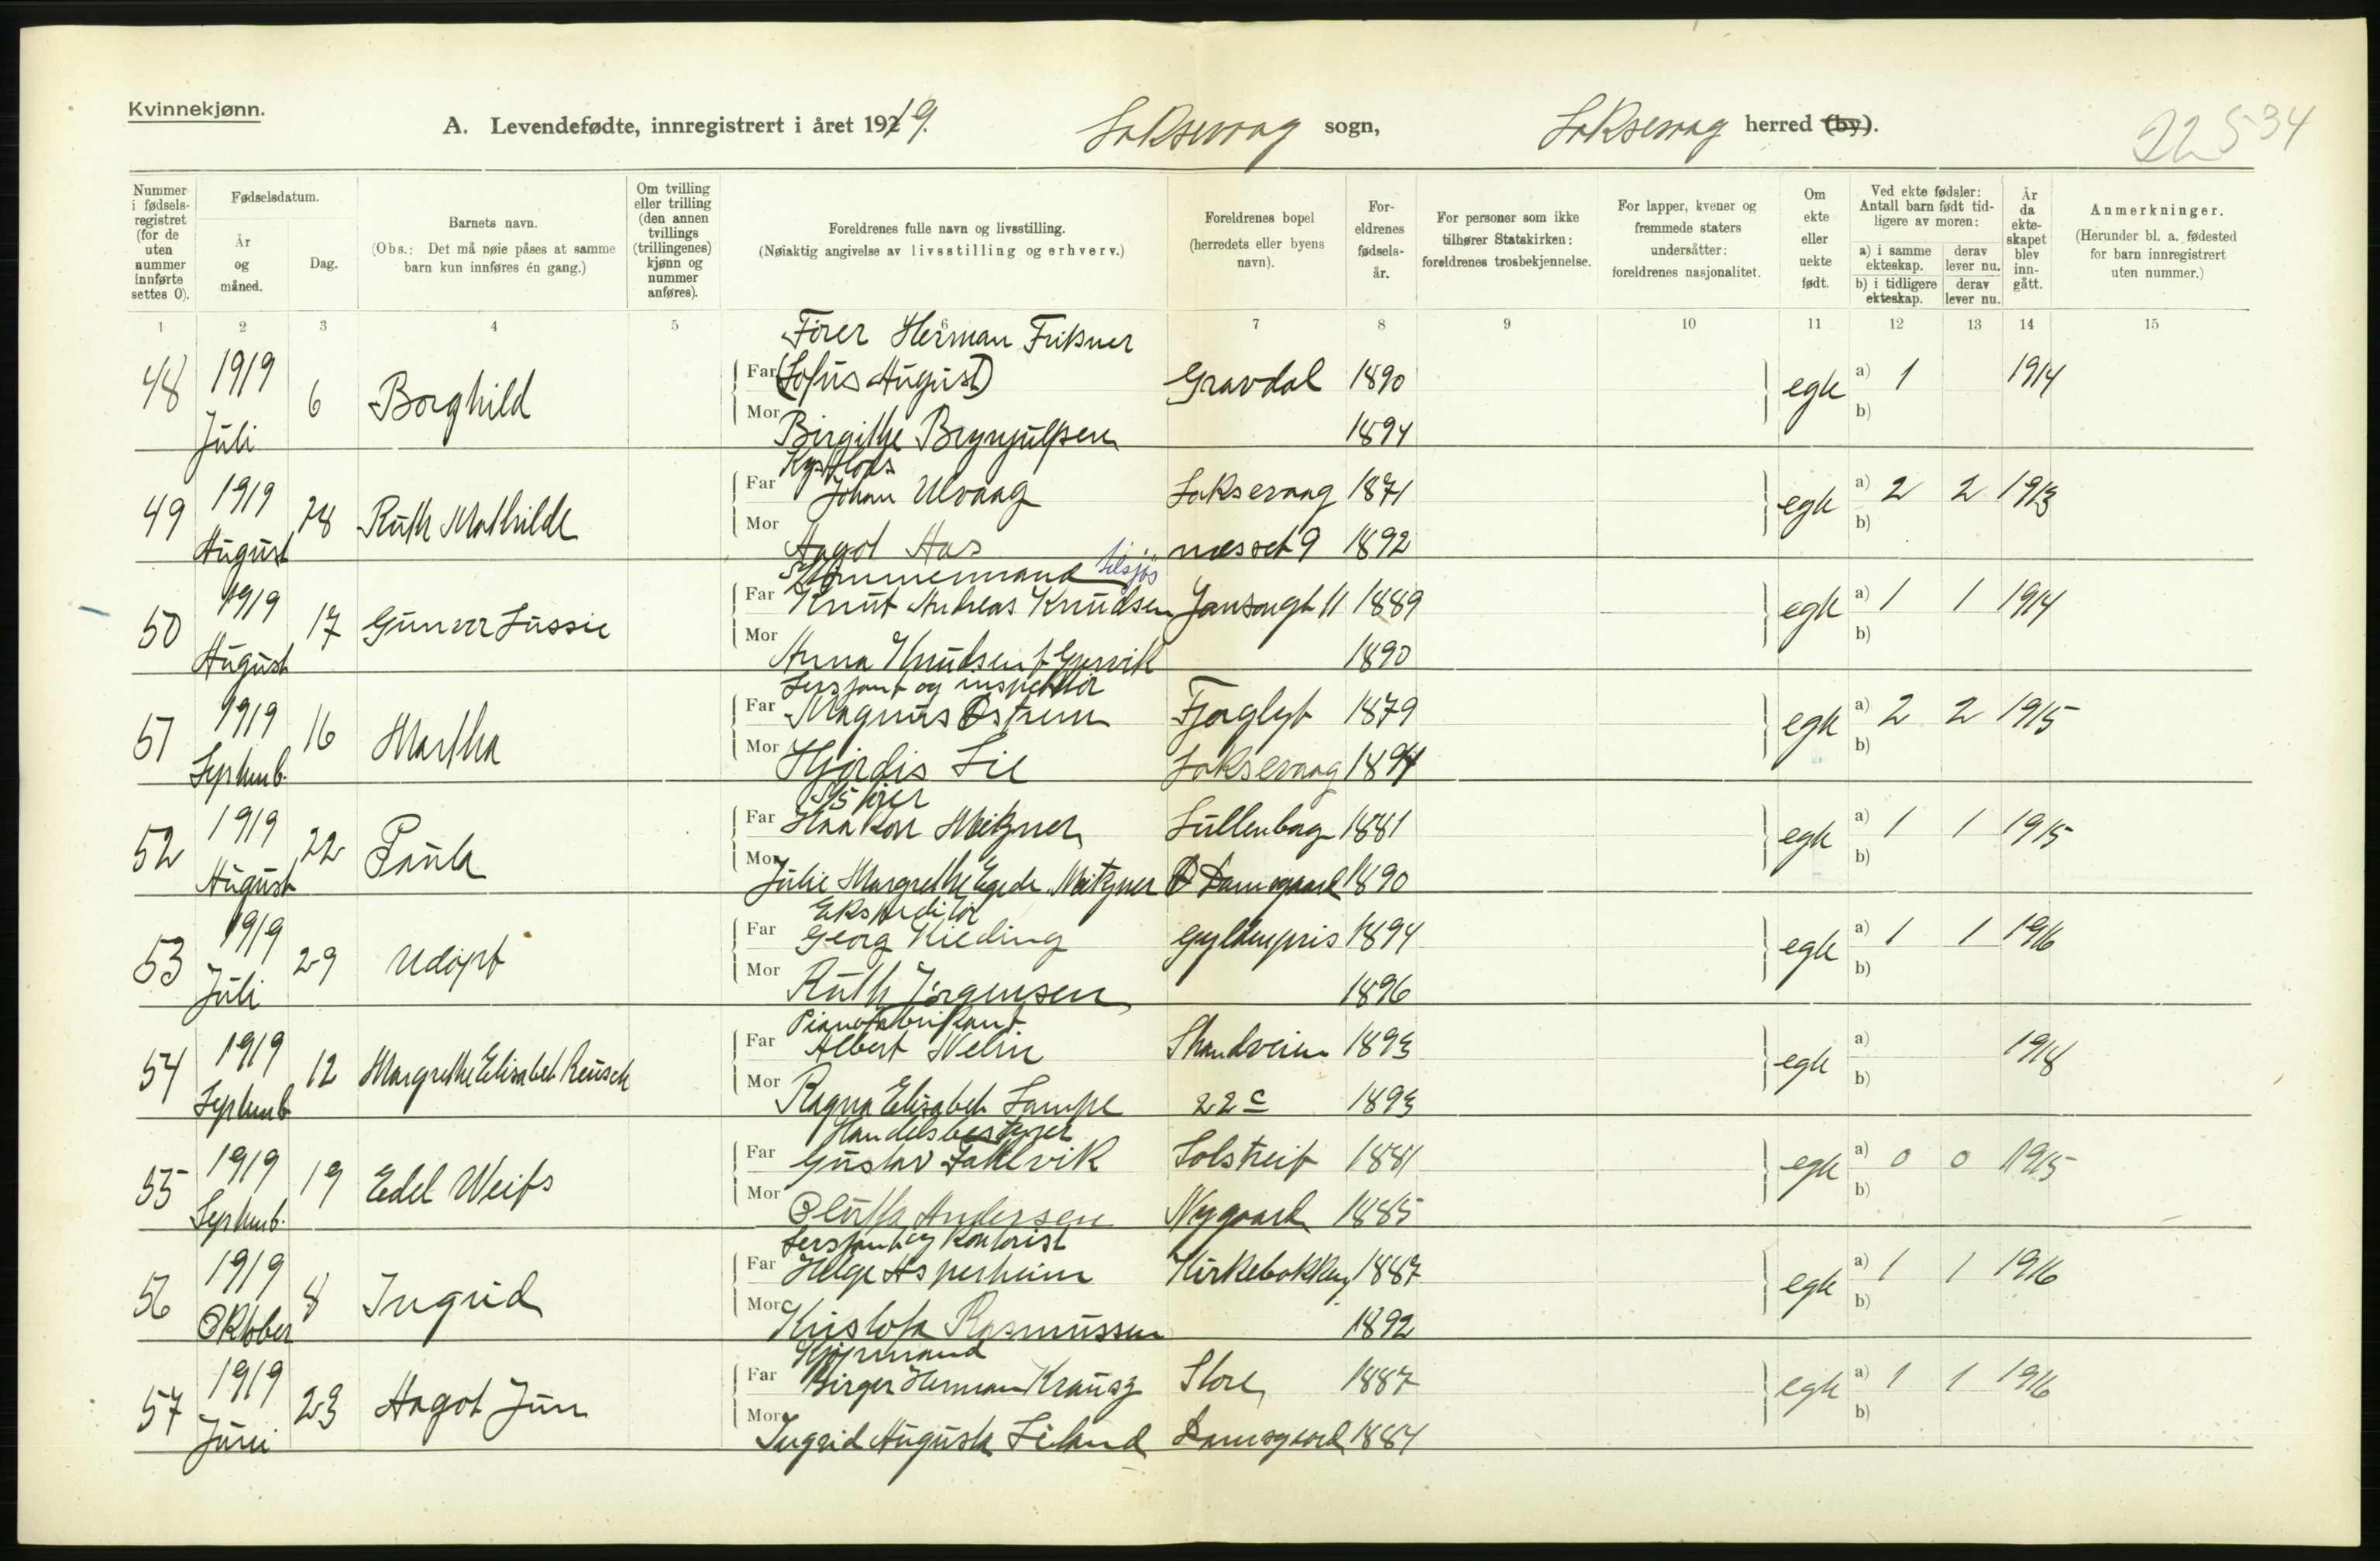 Kvinnekjønn.
A. Levendefødte, innregistrert i året 1919. Laksevaag sogn, Laksevaag herred (by).
22534
Nummer i fødsels-registret (for de uten nummer innførte settes 0).
Fødselsdatum.
År og måned.
Dag.
Barnets navn.
(Obs.: Det må nøie påses at samme barn kun innføres én gang.)
Om tvilling eller trilling (den annen tvillings (trillingenes) kjønn og nummer anføres).
Foreldrenes fulle navn og livsstilling.
(Nøiaktig angivelse av livsstilling og erhverv.)
Foreldrenes bopel (herredets eller byens navn).
For-eldrenes fødsels-år.
For personer som ikke tilhører Statskirken: foreldrenes trosbekjennelse.
For lapper, kvener og fremmede staters undersåtter: foreldrenes nasjonalitet.
Om ekte eller uekte født.
Ved ekte fødsler: Antall barn født tid-ligere av moren:
a) i samme ekteskap.
derav lever nu.
b) i tidligere ekteskap.
derav lever nu.
År da ekte-skapet blev inn-gått.
Anmerkninger.
(Herunder bl. a. fødested for barn innregistrert uten nummer.)
1 2 3 4 5 6 7 8 9 10 11 12 13 14 15
Fører Herman Friksner
48 1919 Juli 6 Borghild Far (Sofus August) Gravdal 1890 egte a) 1 1914
Mor Birgithe Brynjulfsen 1894 b)
Kystlods
49 1919 August 28 Ruth Mathilde Far Johan Ulvaag Laksevaag 1871 egte a) 2 2 1913
Mor Aagot Aas næsset 9 1892 b)
Tømmermand tilsjøs
50 1919 August 17 Gunvor Lussie Far Knut Andreas Knudsen Jansongt 11 1889 egte a) 1 1 1914
Mor Anna Knudsen f. 1890 b)
Sersjant og inspektør
51 1919 Septemb. 16 Martha Far Magnus Østrem Fjøsanger 1879 egte a) 2 2 1915
Mor Hjørdis Lie Laksevaag 1894 b)
S/S fører
52 1919 August 22 Paula Far Haakon Meitzner 1881 egte a) 1 1 1915
Mor Julie Margrethe Egede Meitzner Damsgaard 1890 b)
Ekspeditør
53 1919 Juli 29 Udøpt Far Georg Kieding Gyldenpris 1894 egte a) 1 1 1916
Mor Ruth Jørgensen 1896 b)
Pianofabrikant
54 1919 Septemb 12 Margrethe Elisabet Reusch Far Albert Welin Strandveien 1893 egte a) 1918
Mor Ragna Elisabet Lampe 22 c 1893 b)
Handelsbestyrer
55 1919 Septemb. 19 Edel Weifs Far Gustav Dahlvik Solstreif 1881 egte a) 0 0 1915
Mor Oluffa Andersen Nygaard 1885 b)
Sersjant og Kontorist
56 1919 Oktober 8 Ingrid Far Helge Asperheim Kirkebokken 1887 egte a) 1 1 1916
Mor Kristofa Rasmussen 1892 b)
Kjøpmand
57 1919 Juni 23 Aagot Jun Far Birger Herman Krausz Store 1887 egte a) 1 1 1916
Mor Ingrid Augusta Leland Damsgaard 1884 b)